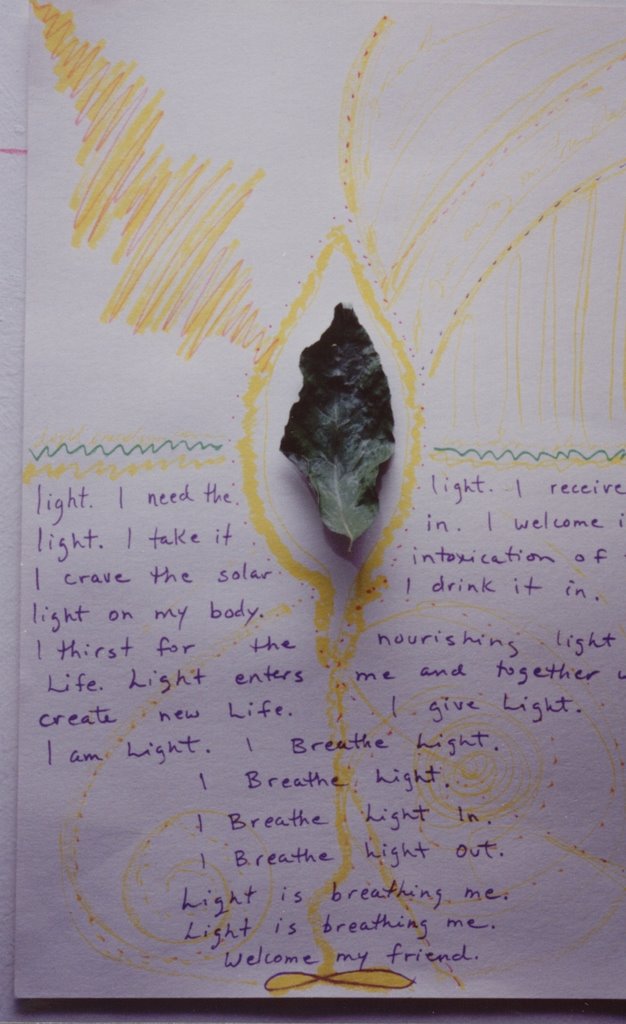 light. I need the light. I receive
light. I take it in. I welcome
I crave the solar intoxication of
light on my body. I drink it in.
I thirst for the nourishing light
Life. Light enters me and together
create new Life. I give Light.
I am Light. I Breathe Light.
I Breathe Light.
I Breathe Light In.
I Breathe Light out.
Light is breathing me.
Light is breathing me.
Welcome my friend.